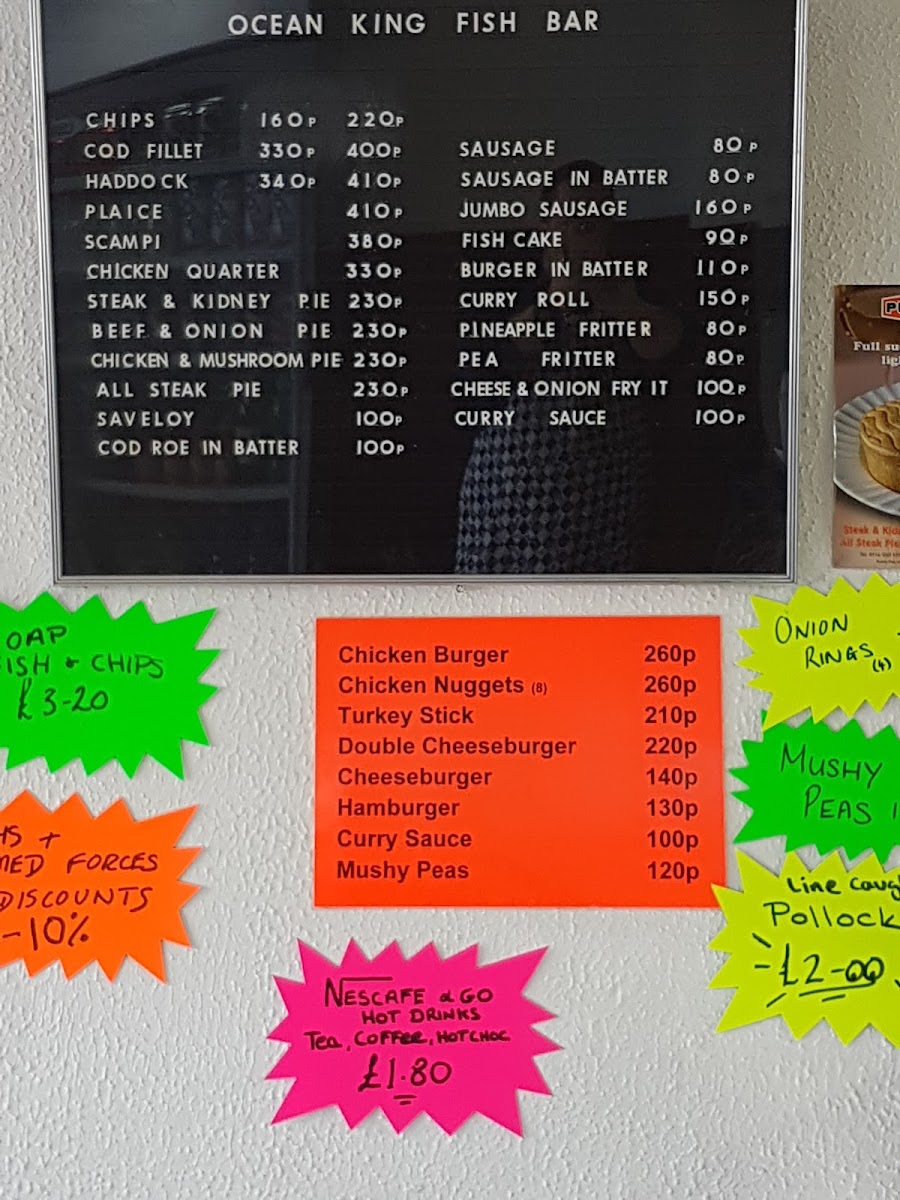 OCEAN KING FISH BAR
CHIPS 160P 220P
COD FILLET 330P 400P
HADDOCK 340P 410P
PLAICE 410P
SCAMPI 380P
CHICKEN QUARTER 330P
STEAK & KIDNEY PIE 230P
BEEF & ONION PIE 230P
CHICKEN & MUSHROOM PIE 230P
ALL STEAK PIE 230P
SAVELOY 100P
COD ROE IN BATTER 100P
SAUSAGE 80P
SAUSAGE IN BATTER 80P
JUMBO SAUSAGE 160P
FISH CAKE 90P
BURGER IN BATTER 110P
CURRY ROLL 150P
PINEAPPLE FRITTER 80P
PEA FRITTER 80P
CHEESE & ONION FRY IT 100P
CURRY SAUCE 100P
Full
Steak &
All Steak
OAP
FISH + CHIPS
£3-20
+
FORCES
DISCOUNTS
-10%
Chicken Burger 260p
Chicken Nuggets (8) 260p
Turkey Stick 210p
Double Cheeseburger 220p
Cheeseburger 140p
Hamburger 130p
Curry Sauce 100p
Mushy Peas 120p
NESCAFE & GO
HOT DRINKS
Tea, COFFee, HOT CHOC
£1.80
ONION
RINGS (4)
MUSHY
PEAS
Line
Pollock
-£2-00